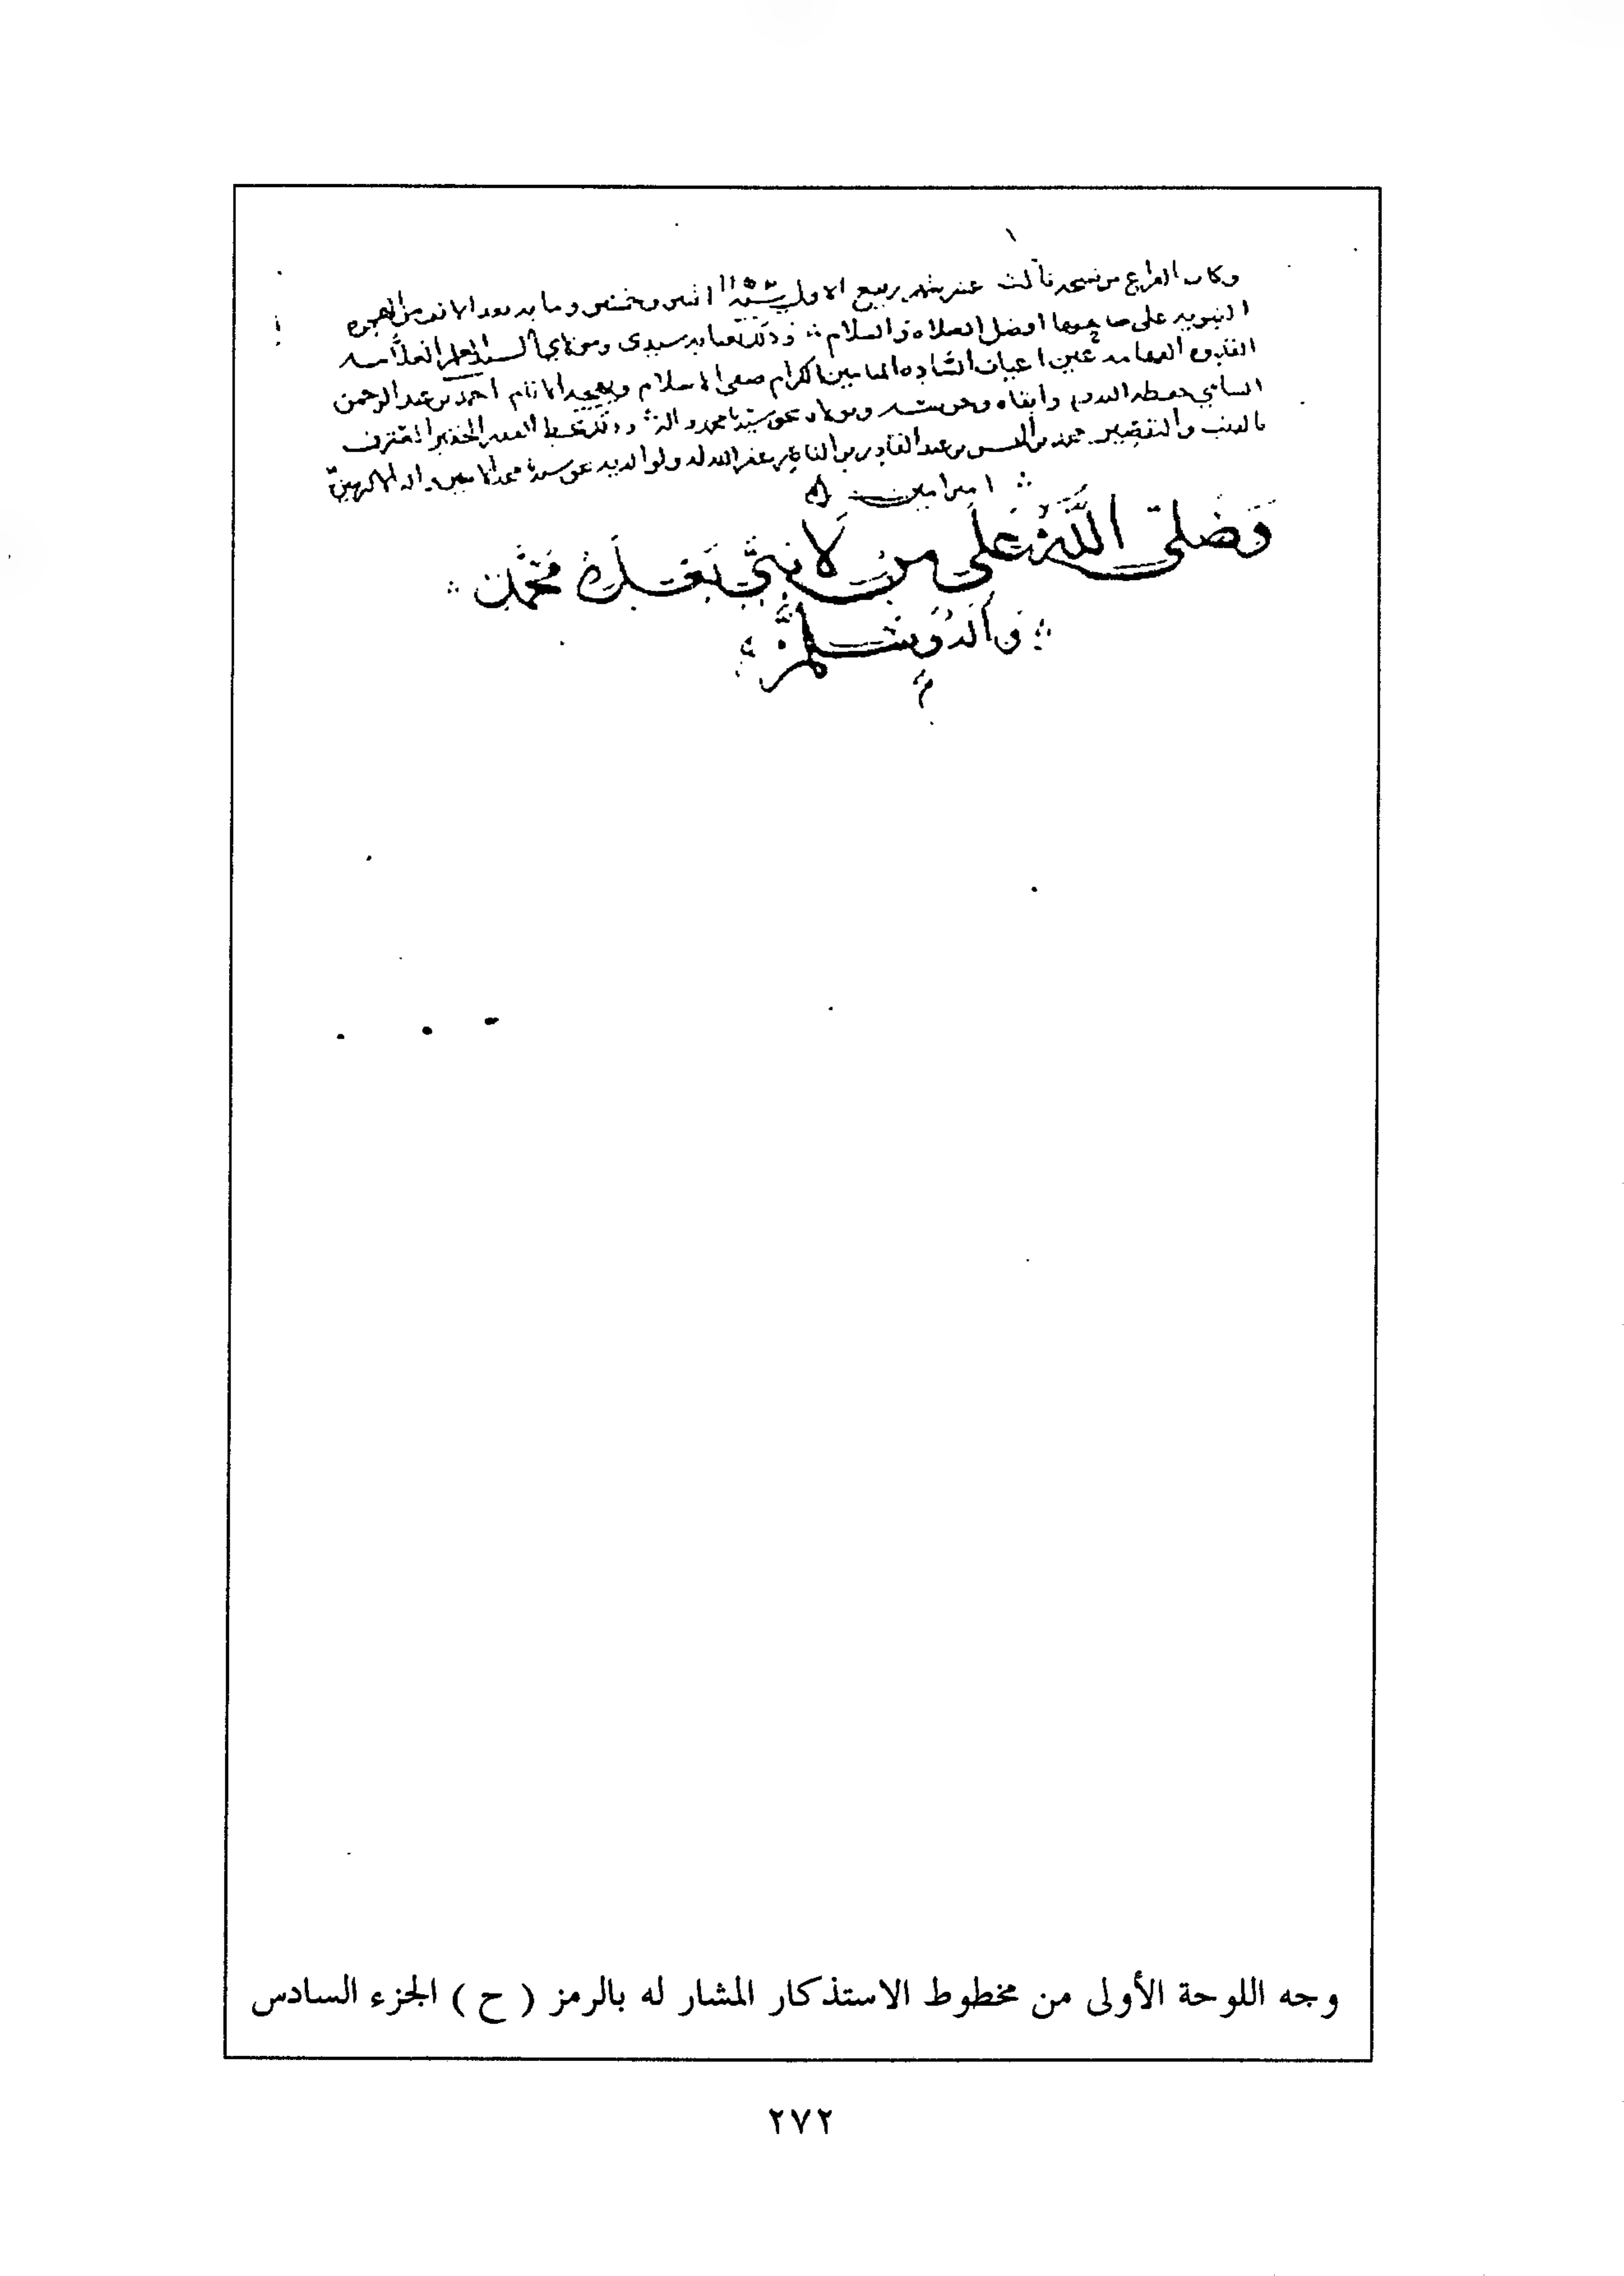 وكان الفراغ من نسخه ثالث عشر شهر ربيع الاول سنة ١١٥٢ اثنين وخمسين وماىه بعد الالف من الهجره
النبويه على صاحبها افضل الصلاه والسلام وذلك بعنايه سيدى ومولاي السيد العلامه
الفهامه عين اعيان الساده الكرام صفي الاسلام وبهجه الانام احمد بن عبد الرحمن
الشامي حفظه الله وابقاه وحرسه وتولاه بحق سيدنا محمد واله وذلك بخط الفقير الحقير المعترف
بالذنب والتقصير محمد بن الحسن بن عبد القادر بن الناصر غفر الله له ولوالديه بحق محمد الامين واله الاكرمين
امين امين
وَصَلى اللَّه عَلى من لَا نبيَّ بَعْدَهُ مُحَمد
وَآله وَسَلم
وجه اللوحة الأولى من مخطوط الاستذكار المشار له بالرمز ( ح ) الجزء السادس
٢٧٢